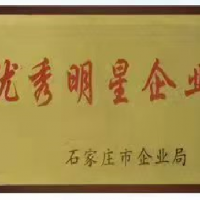 优秀明星企业
石家庄市企业局